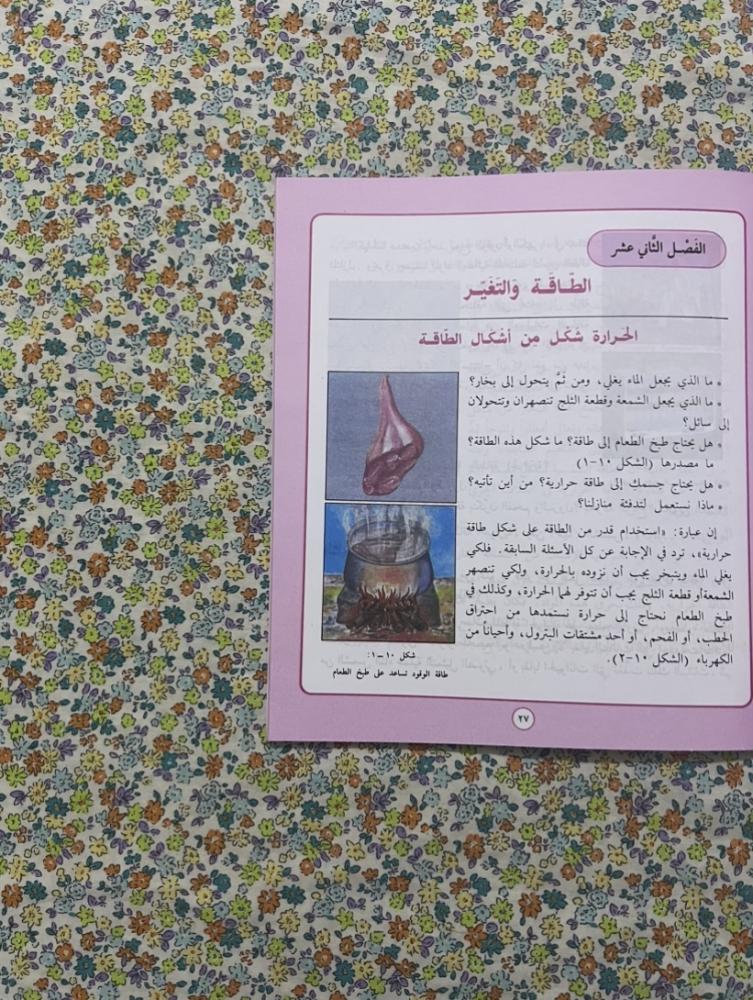 الفَصْل الثَّاني عشر
الطّـاقَـة وَالتَغيّـر
الحَـرارة شَكْـل مِن أشْكَـال الطّاقَـة
• ما الذي يجعل الماء يغلي، ومن ثَمَّ يتحول إلى بخار؟
• ما الذي يجعل الشمعة وقطعة الثلج تنصهران وتتحولان
إلى سائل؟
• هل يحتاج طبخ الطعام إلى طاقة؟ ما شكل هذه الطاقة؟
ما مصدرها (الشكل ١٠-١)
• هل يحتاج جسمك إلى طاقة حرارية؟ من أين تأتيه؟
• ماذا نستعمل لتدفئة منازلنا؟
إن عبارة: «استخدام قدر من الطاقة على شكل طاقة
حرارية»، ترد في الإجابة عن كل الأسئلة السابقة. فلكي
يغلي الماء ويتبخر يجب أن نزوده بالحرارة، ولكي تنصهر
الشمعةأو قطعة الثلج يجب أن تتوفر لهما الحرارة، وكذلك في
طبخ الطعام نحتاج إلى حرارة نستمدها من احتراق
الحطب، أو الفحم، أو أحد مشتقات البترول، وأحياناً من
الكهرباء (الشكل ١٠-٢).
شكل ١٠-١:
طاقة الوقود تساعد على طبخ الطعام
٢٧